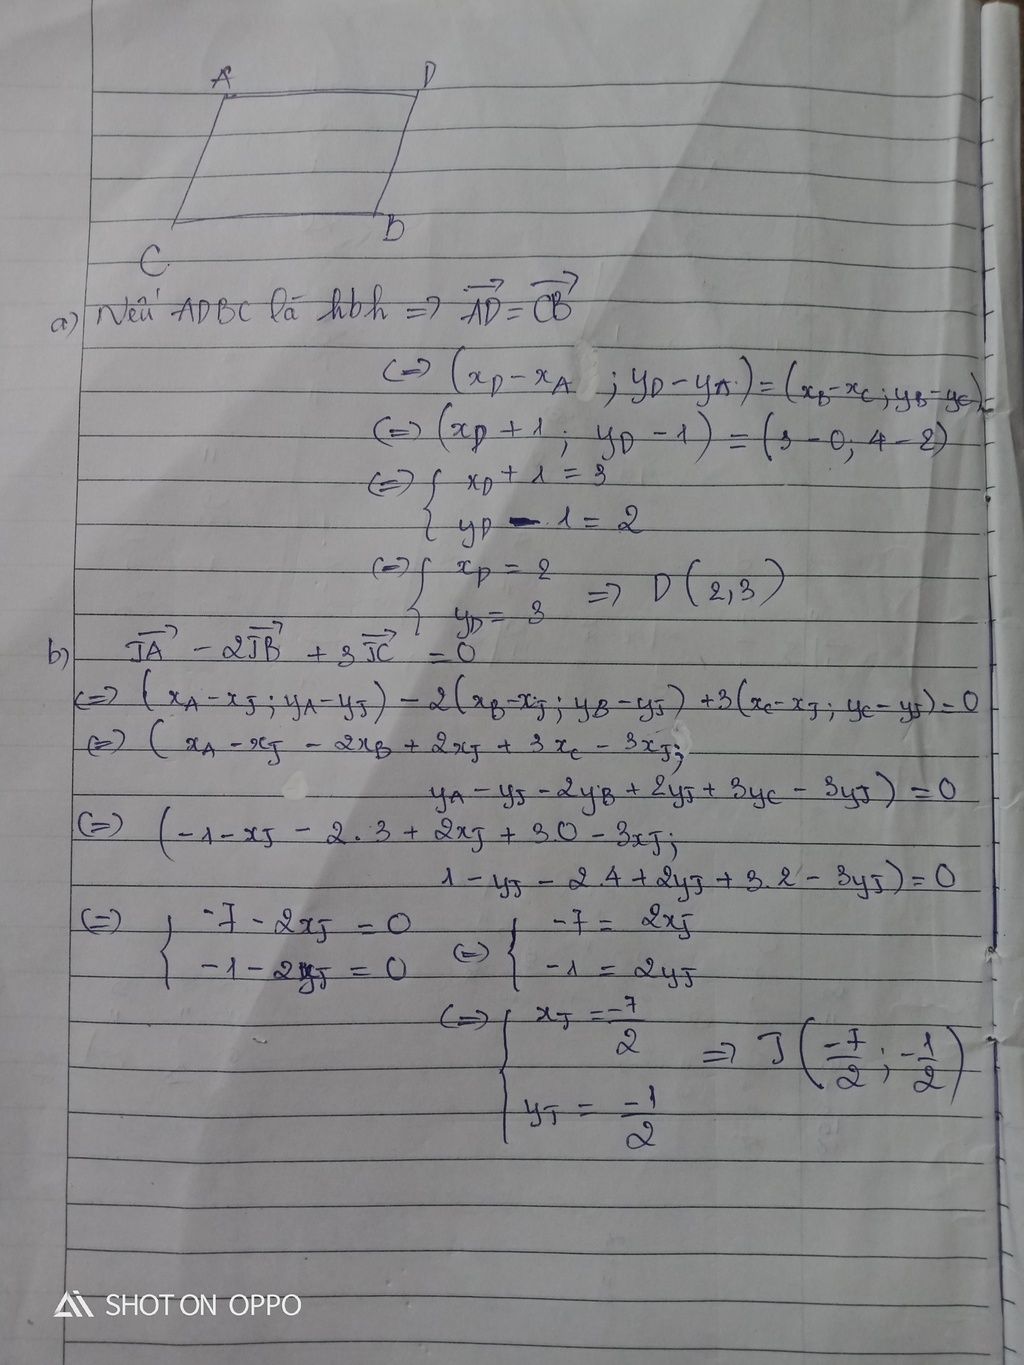 A D
C B
a) Nếu ADBC là hbh => AD = CB
<=> (xD - xA ; yD - yA) = (xB - xC ; yB - yC)
<=> (xD + 1 ; yD - 1) = (3 - 0; 4 - 2)
<=> { xD + 1 = 3
yD - 1 = 2
<=> { xD = 2
yD = 3 => D(2,3)
b) JA - 2JB + 3JC = 0
<=> (xA - xJ ; yA - yJ) - 2(xB - xJ ; yB - yJ) + 3(xC - xJ ; yC - yJ) = 0
<=> ( xA - xJ - 2xB + 2xJ + 3xC - 3xJ;
yA - yJ - 2yB + 2yJ + 3yC - 3yJ) = 0
<=> (-1 - xJ - 2.3 + 2xJ + 3.0 - 3xJ;
1 - yJ - 2.4 + 2yJ + 3.2 - 3yJ) = 0
<=> { -7 - 2xJ = 0 <=> { -7 = 2xJ
-1 - 2yJ = 0 -1 = 2yJ
<=> { xJ = -7/2
yJ = -1/2 => J(-7/2 ; -1/2)
SHOT ON OPPO